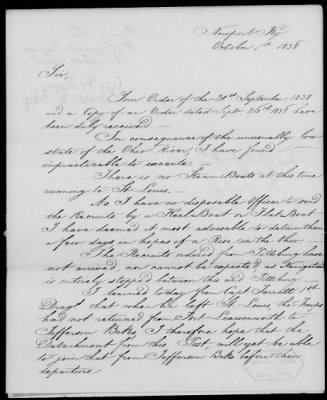 Newport Ky
October 1st 1838
Sir,
Your Order of the 21st September 1838
and a Copy of an Order dated Sept 26th 1838 have
been duly received —
In consequence of the unusually low
state of the Ohio River, I have found
impracticable to execute. —
There is no Steam Boats at this time
running to St. Louis. —
As I have no disposable Officer to send
the Recruits by a Keel Boat or Flat Boat
I have deemed it most advisable to detain them
a few days in hopes of a Rise in the Ohio
The Recruits ordered from Pittsburg have
not arrived, nor cannot be expected as Navigation
is entirely stopped between this and Pittsburg
I learned today from Capt Terrett 1st
Dragt that when he left St Louis the Troops
had not returned from Fort Leavenworth to
Jefferson Bcks I therefore hope that the
Detachment from this Post, will yet be able
to join that from Jefferson Bcks before their
departure